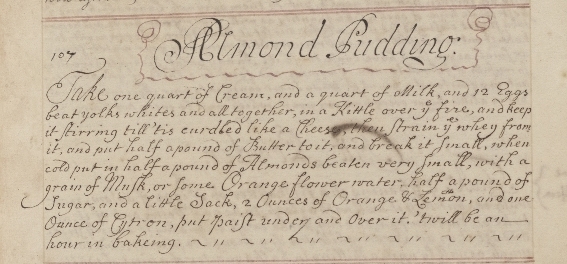 107
Almond Pudding:
Take one quart of Cream, and a quart of Milk, and 12 Eggs
beat yolks whites and all together, in a Kittle over ÿ fire, and keep
it stirring till 'tis curdled like a Cheese, then strain ÿ whey from
it, and put half a pound of Butter to it, and break it small, when
cold put in half a pound of Almonds beaten very small, with a
grain of Musk, or some Orange flower water, half a pound of
Sugar, and a little Sack, 2 Ounces of Orange & Lemon, and one
Ounce of Cytron, put Paist under and Over it. 'twill be an
hour in bakeing.